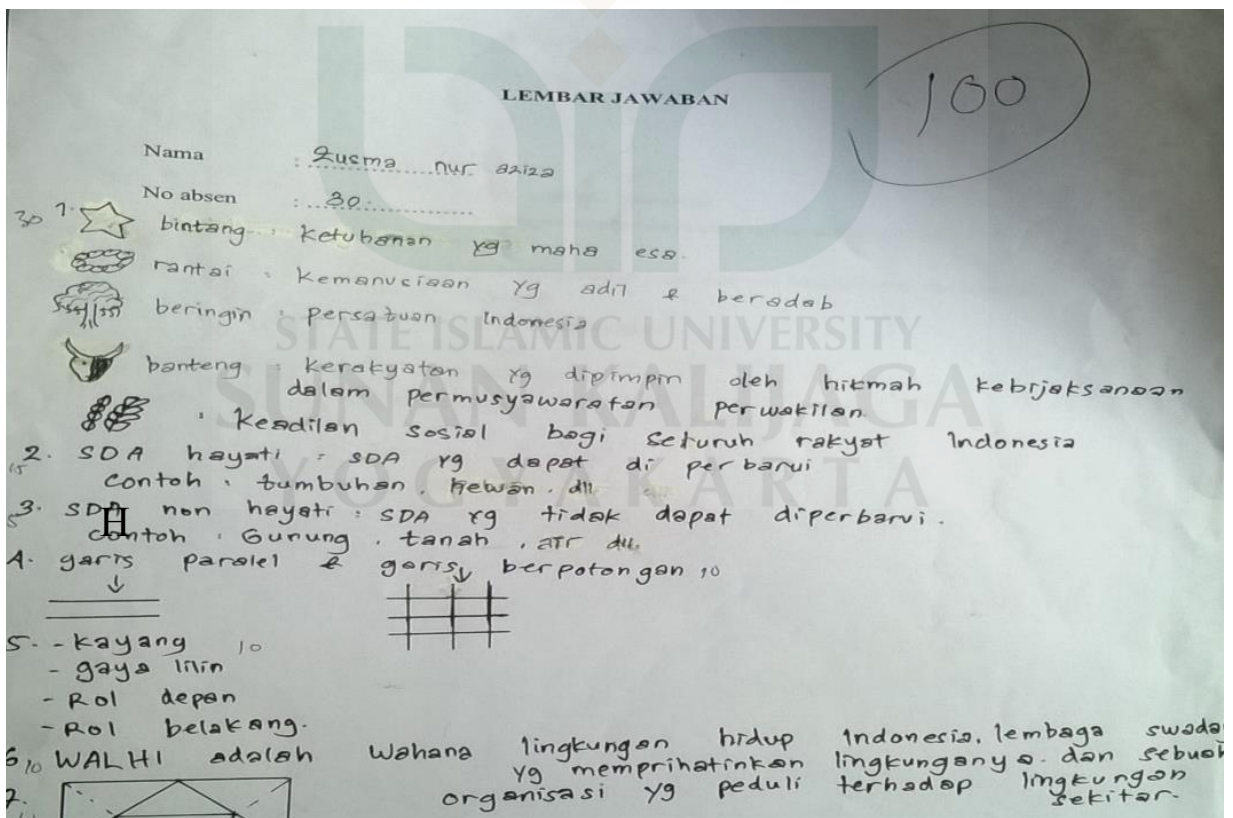 100
LEMBAR JAWABAN
Nama : Zusma nur aziza
No absen : 30
30 1. bintang : Ketuhanan yg maha esa.
rantai : Kemanusiaan yg adil & beradab
beringin : persatuan Indonesia
STATE ISLAMIC UNIVERSITY
banteng : kerakyatan yg dipimpin oleh hikmah kebijaksanaan
dalam permusyawaratan perwakilan.
SUNAN KALIJAGA
: Keadilan sosial bagi seluruh rakyat Indonesia
15 2. SDA hayati : SDA yg dapat di perbarui
YOGYAKARTA
contoh : tumbuhan, hewan, dll
5 3. SDA non hayati : SDA yg tidak dapat diperbarui.
H
contoh : Gunung, tanah, air dll.
4. garis paralel & garis berpotongan 10
5. - kayang 10
- gaya lilin
- Rol depan
- Rol belakang.
6. 10 WALHI adalah Wahana lingkungan hidup Indonesia, lembaga swada
yg memprihatinkan lingkunganya. dan sebuah
organisasi yg peduli terhadap lingkungan
sekitar.
7.